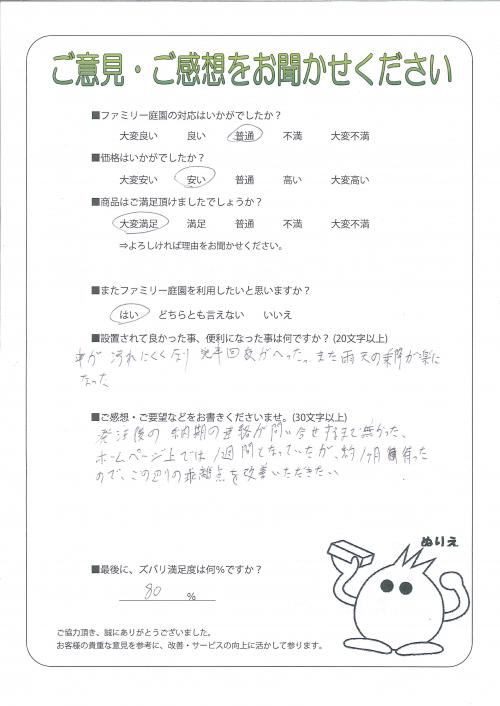 ご意見・ご感想をお聞かせください
■ファミリー庭園の対応はいかがでしたか？
大変良い 良い 普通 不満 大変不満
■価格はいかがでしたか？
大変安い 安い 普通 高い 大変高い
■商品はご満足頂けましたでしょうか？
大変満足 満足 普通 不満 大変不満
⇒よろしければ理由をお聞かせください。
■またファミリー庭園を利用したいと思いますか？
はい どちらとも言えない いいえ
■設置されて良かった事、便利になった事は何ですか？(20文字以上)
車が汚れにくくなり洗車回数がへった。また雨天の乗降が楽に
なった
■ご感想・ご要望などをお書きくださいませ。(30文字以上)
発注後の納期の連絡が問い合せするまで無かった、
ホームページ上では1週間となっていたが、約1ヶ月待った
ので、この辺りの乖離点を改善いただきたい
ぬりえ
■最後に、ズバリ満足度は何%ですか？
80 %
ご協力頂き、誠にありがとうございました。
お客様の貴重な意見を参考に、改善・サービスの向上に活かして参ります。